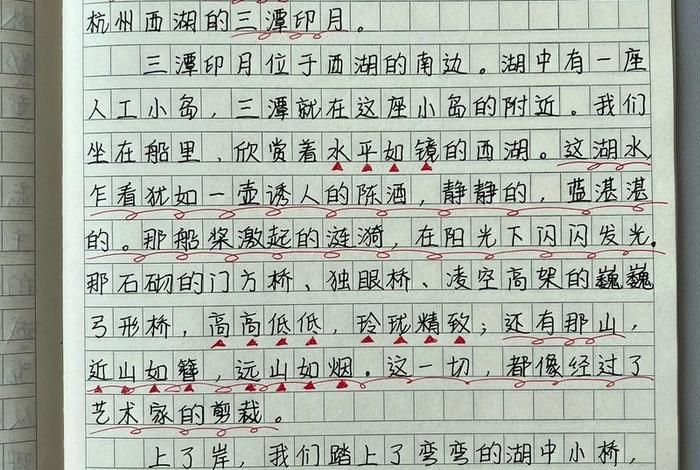 杭州西湖的三潭印月。
三潭印月位于西湖的南边。湖中有一座
人工小岛，三潭就在这座小岛的附近。我们
坐在船里、欣赏着水平如镜的西湖。这湖水
乍看犹如一壶诱人的陈酒，静静的，蓝湛湛
的。那船桨激起的涟漪，在阳光下闪闪发光。
那石砌的门方桥、独眼桥、凌空高架的巍巍
弓形桥，高高低低，玲珑精致；还有那山，
近山如簪，远山如烟。这一切，都像经过了
艺术家的剪裁。
上了岸，我们踏上了弯弯的湖中小桥，